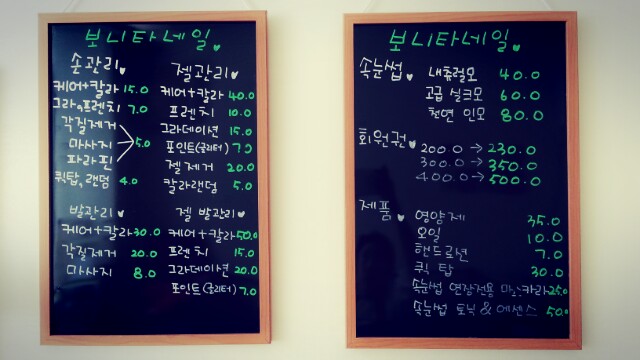 보니타네일
손관리
케어+칼라 15.0
그라,프렌치 7.0
각질제거
마사지 5.0
파라핀
퀵탑,랜덤 4.0
발관리
케어+칼라 30.0
각질제거 20.0
마사지 8.0
젤관리
케어+칼라 40.0
프렌치 10.0
그라데이션 15.0
포인트(글리터) 7.0
젤제거 20.0
칼라랜덤 5.0
젤 발관리
케어+칼라 50.0
프렌치 15.0
그라데이션 20.0
포인트(글리터) 7.0
보니타네일
속눈썹
내츄럴모 40.0
고급 실크모 60.0
천연 인모 80.0
회원권
200.0 → 230.0
300.0 → 350.0
400.0 → 500.0
제품
영양제 35.0
오일 10.0
핸드로션 7.0
퀵 탑 30.0
속눈썹 연장전용 마스카라 25.0
속눈썹 토닉 & 에센스 50.0